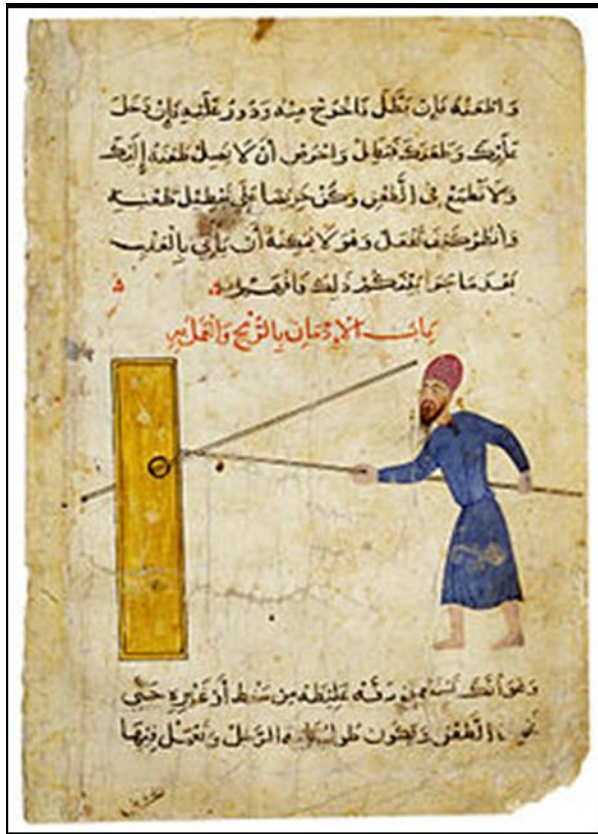 واطعنه فإن بطل فاخرج منه ودور عليه فإن دخل
وطعنك فبطل واحرص أن لا يصل طعنه إليك
ولا تطمع في الطعن وكن حريصا على تبطيل طعنه
وانظر كيف تفعل وهو لا يمكنه أن يأتي
بعدما ذلك وافهم
باب الإدمان بالرمح والعمل به
وهو أنك تستعمل دفه غليظه من سنط أو غيره حتى
الطعن ويكون الرجل وتعمل فيها